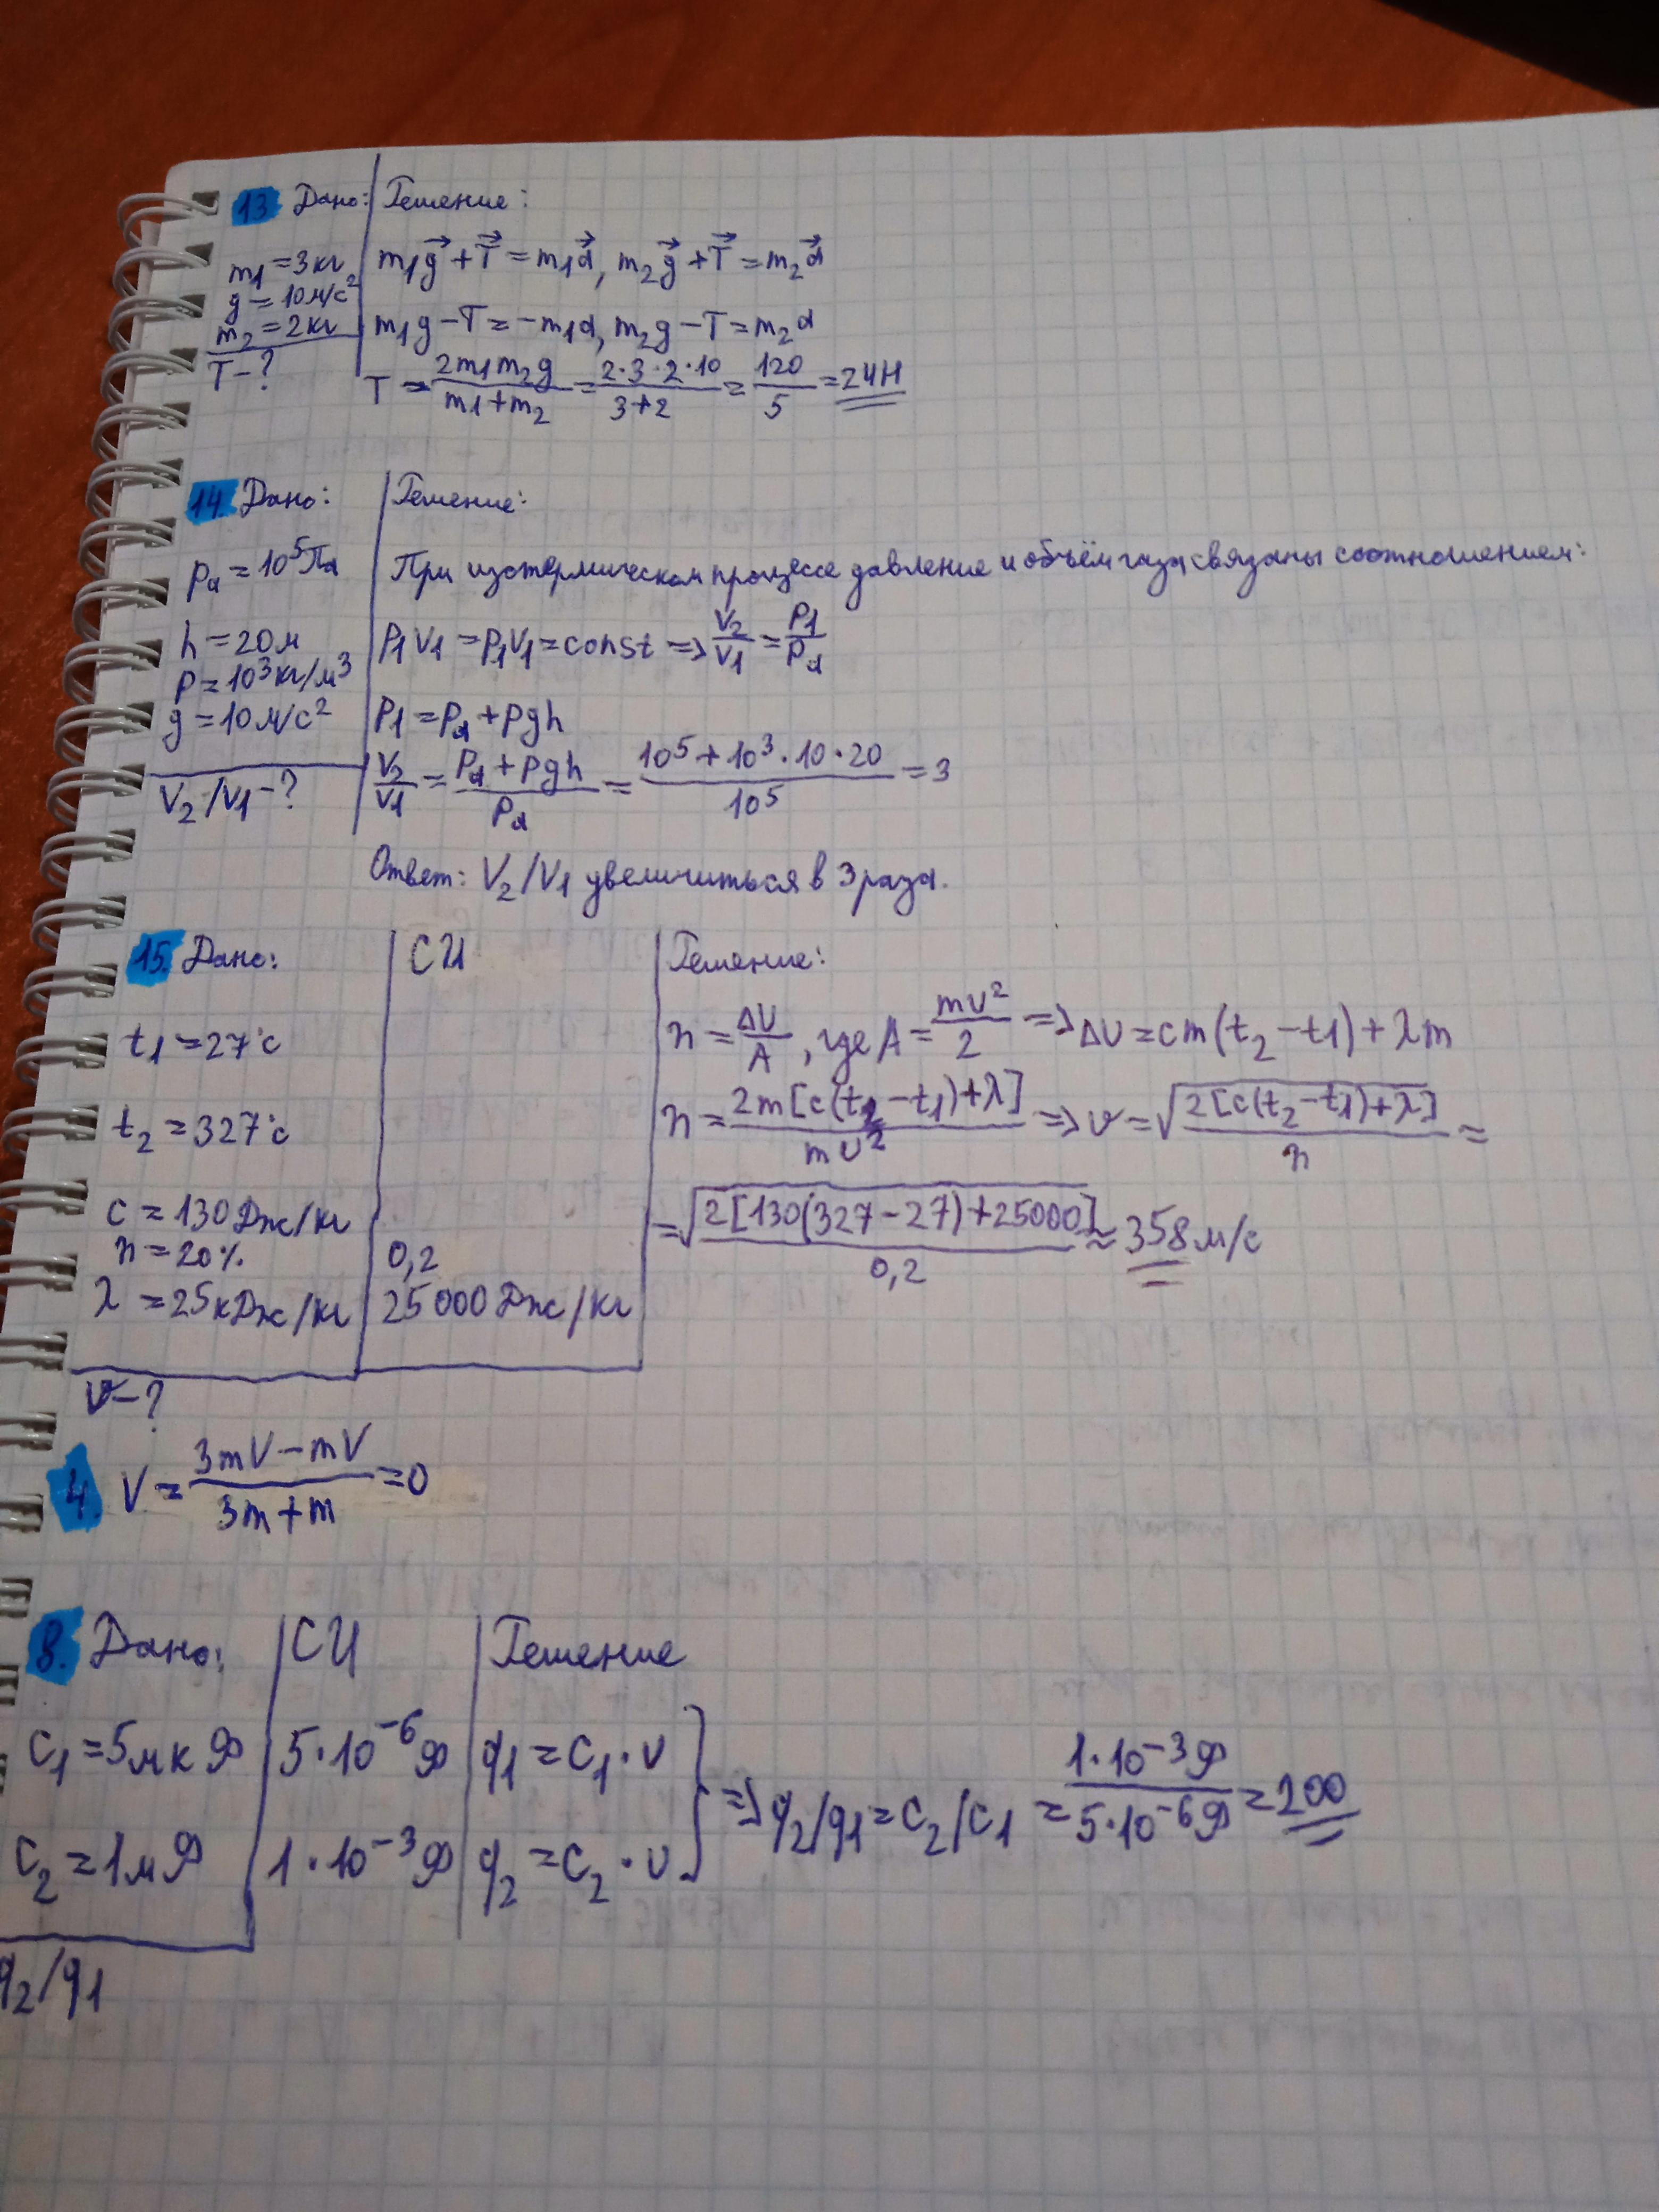 13 Дано: Решение:
m₁ = 3 кг
g = 10 м/с²
m₂ = 2 кг
T – ?
m₁g⃗ + T⃗ = m₁a⃗, m₂g⃗ + T⃗ = m₂a⃗
m₁g – T = –m₁a, m₂g – T = m₂a
T = 2m₁m₂g / m₁+m₂ = 2·3·2·10 / 3+2 = 120 / 5 = 24 Н
14. Дано: Решение:
pa = 10⁵ Па
h = 20 м
ρ = 10³ кг/м³
g = 10 м/с²
V₂/V₁ – ?
При изотермическом процессе давление и объём газа связаны соотношением:
P₁V₁ = P₁V₁ = const => V₂/V₁ = P₁/Pa
P₁ = Pa + ρgh
V₂/V₁ = Pa + ρgh / Pa = 10⁵ + 10³·10·20 / 10⁵ = 3
Ответ: V₂/V₁ увеличиться в 3 раза.
15. Дано: СИ Решение:
t₁ = 27°c
t₂ = 327°c
c = 130 Дж/кг
n = 20% 0,2
λ = 25 кДж/кг 25000 Дж/кг
v – ?
n = ΔU/A, где A = mv²/2 => ΔU = cm(t₂ – t₁) + λm
n = 2m[c(t₂ – t₁) + λ] / mv² => v = √2[c(t₂ – t₁) + λ] / n =
= √2[130(327 – 27) + 25000] / 0,2 ≈ 358 м/с
4. V = 3mV – mV / 3m + m = 0
8. Дано: СИ Решение
C₁ = 5 мкФ 5·10⁻⁶ Ф q₁ = C₁·U
C₂ = 1 мФ 1·10⁻³ Ф q₂ = C₂·U
=> q₂/q₁ = C₂/C₁ = 1·10⁻³Ф / 5·10⁻⁶Ф = 200
q₂/q₁